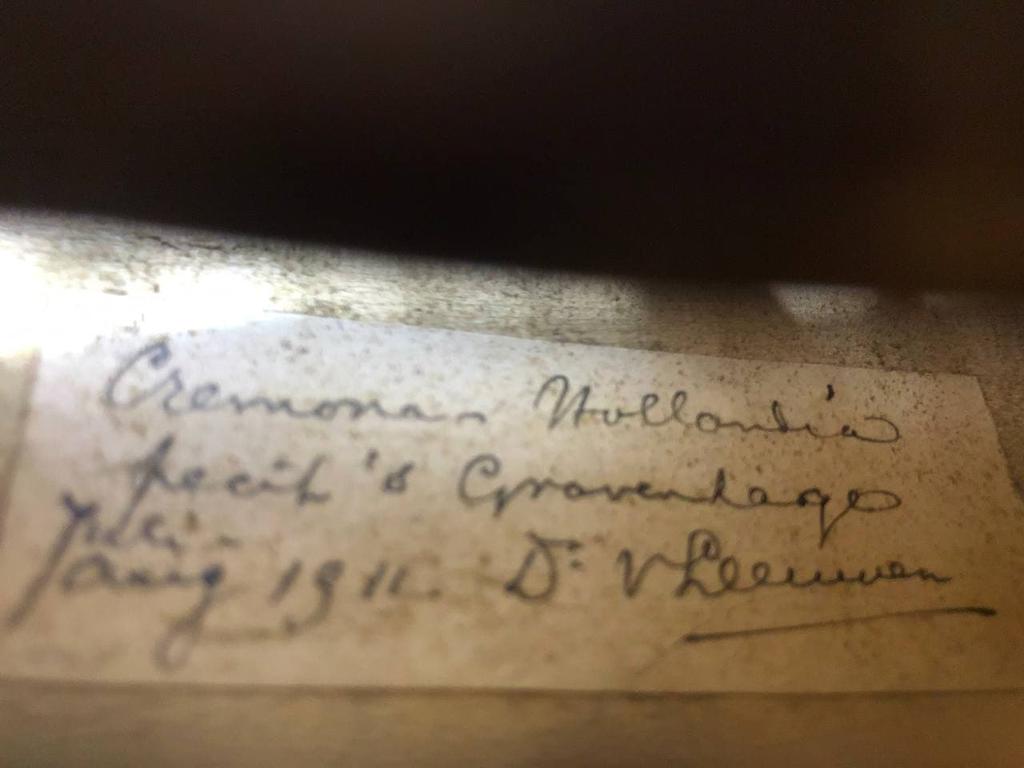 Cremona - Hollandia
fecit 's Gravenhage
Juli -
Aug 1911. Dr. v Leeuwen